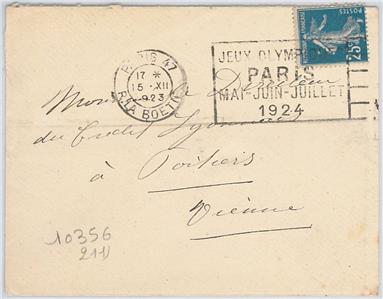 PARIS 47
17 *
15 · XII
1923
R. LA BOETIE
POSTES
25
JEUX OLYMPIQUES
PARIS
MAI-JUIN-JUILLET
1924
Monsieur le Directeur
du Crédit Lyonnais
à Poitiers
Vienne
10356
211